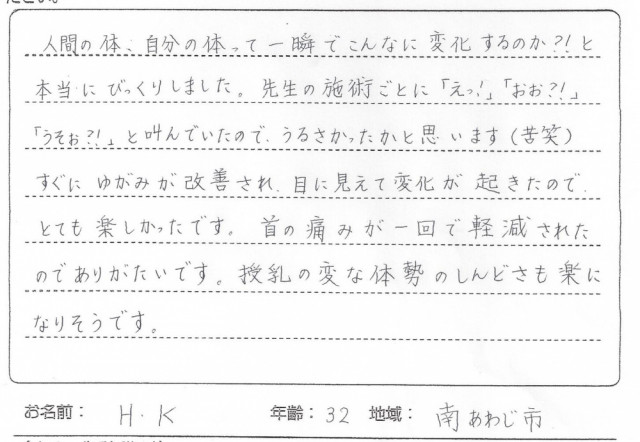 ださい。
人間の体、自分の体って一瞬でこんなに変化するのか?!と
本当にびっくりしました。先生の施術ごとに「えっ!」「おお?!」
「うそぉ?!」と叫んでいたので、うるさかったかと思います(苦笑)
すぐにゆがみが改善され、目に見えて変化が起きたので、
とても楽しかったです。首の痛みが一回で軽減された
のでありがたいです。授乳の変な体勢のしんどさも楽に
なりそうです。
お名前: H.K 年齢:32 地域: 南あわじ市